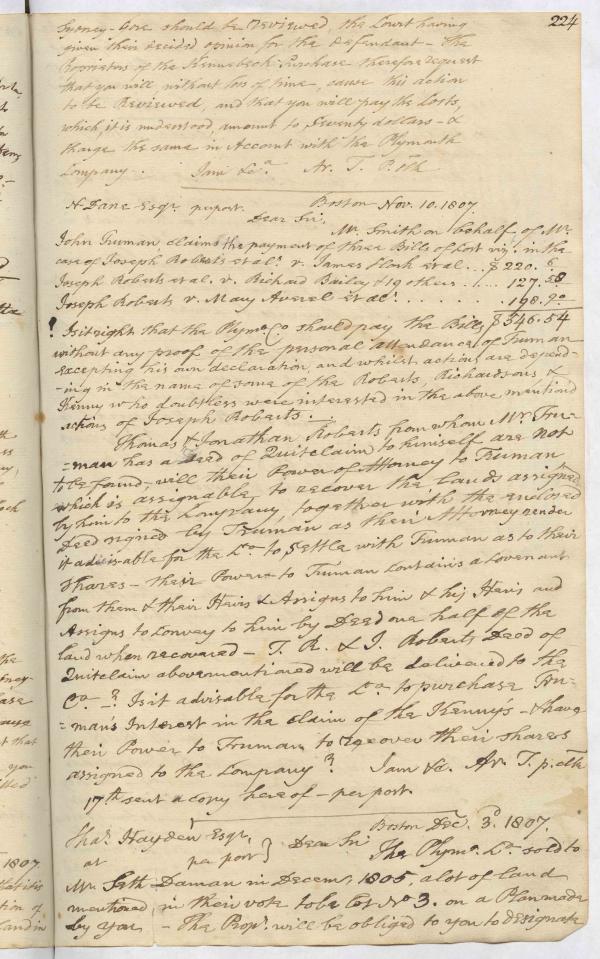 224
Gore should be Reviewed, the Court having
given their decided opinion for the Defendant - The
Proprietors of the Kennebeck Purchase therefore request
that you will, without loss of time, cause this action
to be Reviewed, and that you will pay the Costs,
which, it is understood, amount to Seventy dollars - &
charge the same in Account with the Plymouth
Company. I am &c.a Ar. T. P. Clk
N Dane Esqr. per post. Boston Nov. 10. 1807.
Dear Sir,
Mr. Smith on behalf of Mr
John Truman claims the payment of three Bills of Cost viz. in the
case of Joseph Roberts et als v. James Clark et al ... $220. 6
Joseph Roberts et al. v. Richard Bailey & 19 others ... 127. 58
Joseph Roberts v. Mary Averel et al ... 198. 90
? Is it right that the Plymo. Co should pay the Bills $546.54
without any proof of the personal attendance of Truman
excepting his own declaration, and whilst actions are depend-
-ing in the name of some of the Roberts, Richardsons &
Kenny who doubtless were interested in the above mention'd
actions of Joseph Roberts. -
Thomas & Jonathan Roberts from whom Mr. Tru-
=man has a Deed of Quitclaim to himself are not
to be found, will their Power of Attorney to Truman
which is assignable, to recover the lands assigned
by him to the Company, together with the enclosed
Deed signed by Truman as their Attorney render
it adviseable for the Co. to settle with Truman as to their
shares - their Power to Truman contains a Covenant
from them & their Heirs & Assigns to him & his Heirs and
Assigns to convey to him by Deed one half of the
land when recovered - T. R. & J. Roberts Deed of
Quitclaim abovementioned will be delivered to the
Co. - ? Is it advisable for the Co. to purchase Tru-
=man's Interest in the claim of the Kenny's - & have
their Power to Truman to recover their shares
assigned to the Company? I am &c. Ar. T. p. Clk
17th sent a copy hereof - per post.
Boston Dec. 3d. 1807.
Chas. Hayden Esqr. } Dear Sir
at per post The Plymo. Co. sold to
Mr. Seth Daman in Decemr. 1805, a lot of land
mentioned, in their vote to be Lot No 3. on a Plan made
by you - The Propr. will be obliged to you to designate